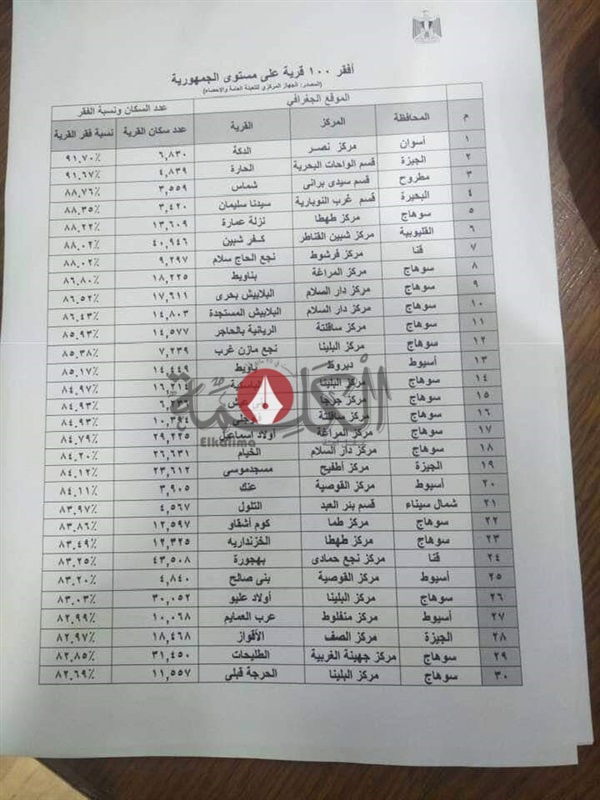 أفقر ١٠٠ قرية على مستوى الجمهورية
(المصدر: الجهاز المركزي للتعبئة العامة والإحصاء)
م الموقع الجغرافي عدد السكان ونسبة الفقر
المحافظة المركز القرية عدد سكان القرية نسبة فقر القرية
١ أسوان مركز نصر الدكة ٦,٨٣٠ ٩١.٧٠٪
٢ الجيزة قسم الواحات البحرية الحارة ٤,٨٣٩ ٩١.٦٧٪
٣ مطروح قسم سيدى برانى شماس ٣,٥٥٩ ٨٨.٧٦٪
٤ البحيرة قسم غرب النوبارية سيدنا سليمان ٣,٤٢٠ ٨٨.٣٥٪
٥ سوهاج مركز طهطا نزلة عمارة ١٣,٦٠٩ ٨٨.٢٢٪
٦ القليوبية مركز شبين القناطر كفر شبين ٤٠,٩٤٦ ٨٨.٠٢٪
٧ قنا مركز فرشوط نجع الحاج سلام ٩,٢٩٧ ٨٨.٠٢٪
٨ سوهاج مركز المراغة بناويط ١٨,٢٢٥ ٨٦.٨٠٪
٩ سوهاج مركز دار السلام البلابيش بحرى ١٧,٦١١ ٨٦.٥٢٪
١٠ سوهاج مركز دار السلام البلابيش المستجدة ١٤,٨٠٣ ٨٦.٤٣٪
١١ سوهاج مركز ساقلتة الريانية بالحاجر ١٤,٥٧٧ ٨٥.٩٣٪
١٢ سوهاج مركز البلينا نجع مازن غرب ٧,٢٣٩ ٨٥.٣٨٪
١٣ أسيوط ديروط باويط ٨٥.١٧٪
١٤ سوهاج مركز البلينا ٨٤.٩٧٪
١٥ سوهاج مركز جرجا ٨٤.٩٣٪
١٦ سوهاج مركز ساقلتة ٨٤.٩٣٪
١٧ سوهاج مركز المراغة أولاد اسماعيل ٢٩,٢٢٥ ٨٤.٧٩٪
١٨ سوهاج مركز دار السلام الخيام ٢٦,٦٣١ ٨٤.٢٠٪
١٩ الجيزة مركز أطفيح مسجدموسى ٢٣,٦١٢ ٨٤.١٢٪
٢٠ أسيوط مركز القوصية عنك ٣,٩٠٥ ٨٤.١١٪
٢١ شمال سيناء قسم بئر العبد التلول ٤,٥٦٧ ٨٣.٩٧٪
٢٢ سوهاج مركز طما كوم أشقاو ١٢,٥٩٧ ٨٣.٨٦٪
٢٣ سوهاج مركز طهطا الخزنداريه ١٢,٣٢٥ ٨٣.٤٩٪
٢٤ قنا مركز نجع حمادى بهجورة ٤٣,٥٠٨ ٨٣.٢٥٪
٢٥ أسيوط مركز القوصية بنى صالح ٤,٨٤٠ ٨٣.٢٠٪
٢٦ سوهاج مركز البلينا أولاد عليو ٣٠,٠٥٢ ٨٣.٠٣٪
٢٧ أسيوط مركز منفلوط عرب العمايم ١٠,٠٦٨ ٨٢.٩٩٪
٢٨ الجيزة مركز الصف الأقواز ١٨,٤٦٨ ٨٢.٩٧٪
٢٩ سوهاج مركز جهينة الغربية الطليحات ٣١,٤٥٠ ٨٢.٨٥٪
٣٠ سوهاج مركز البلينا الحرجة قبلي ١١,٥٥٧ ٨٢.٦٩٪
الكلمة
Elkalima